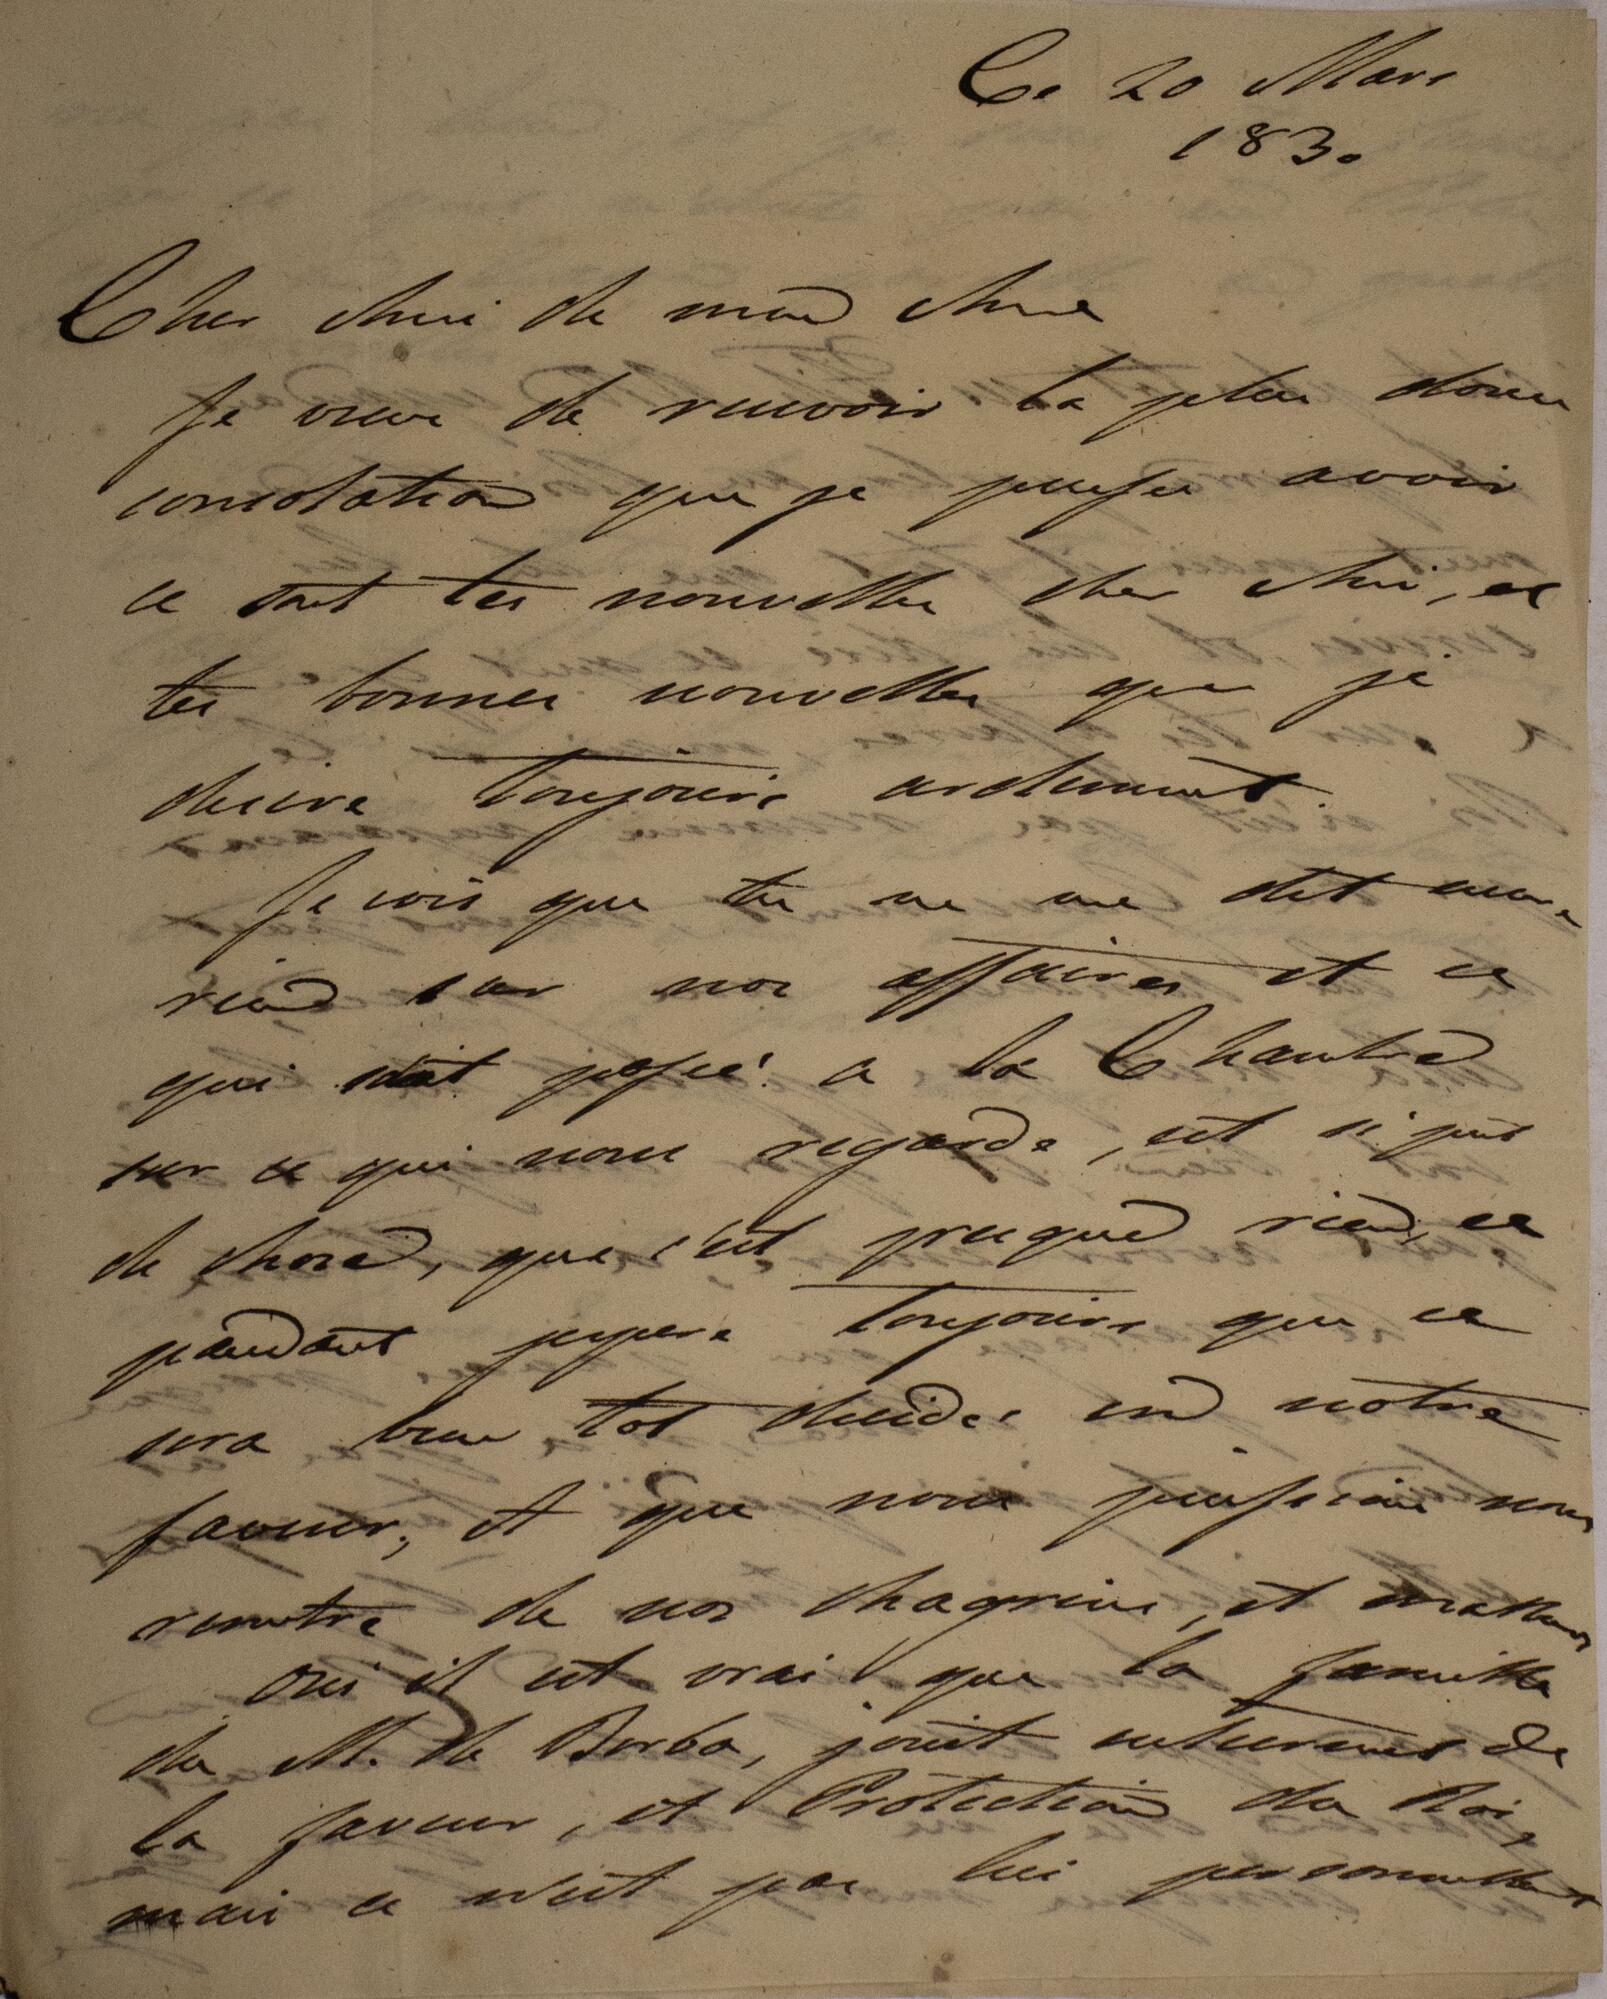 Ce 20 Mars
1830
Cher Ami de mon Ame
Je viens de recevoir la plus douce
consolation que je puisse avoir
ce sont tes nouvelles cher Ami, ce
tes bonnes nouvelles que je
desire toujours ardement.
Je vois que tu ne me dit encore
rien sur nos affaires et ce
qui s'est passé a la Chambre
sur ce qui nous regarde, est si peut
de chose, que c'est presque rien, ce
pendant j'espere toujours que ce
sera bien tot decidé en notre
faveur, et que nous puissions nous
remetre de nos chagrins, et malheurs
Oui il est vrai que la famille
du M. de Borba, jouit entierement de
la faveur, et Protection du Roi,
mais ce n'est pas lui personnellement